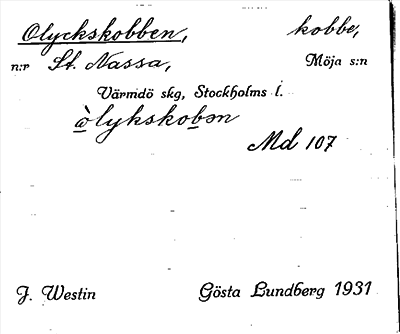 Olyckskobben, kobbe,
n:r St. Nassa, Möja s:n
Värmdö skg, Stockholms l.
òlykskobən
Md 107
J. Westin Gösta Lundberg 1931